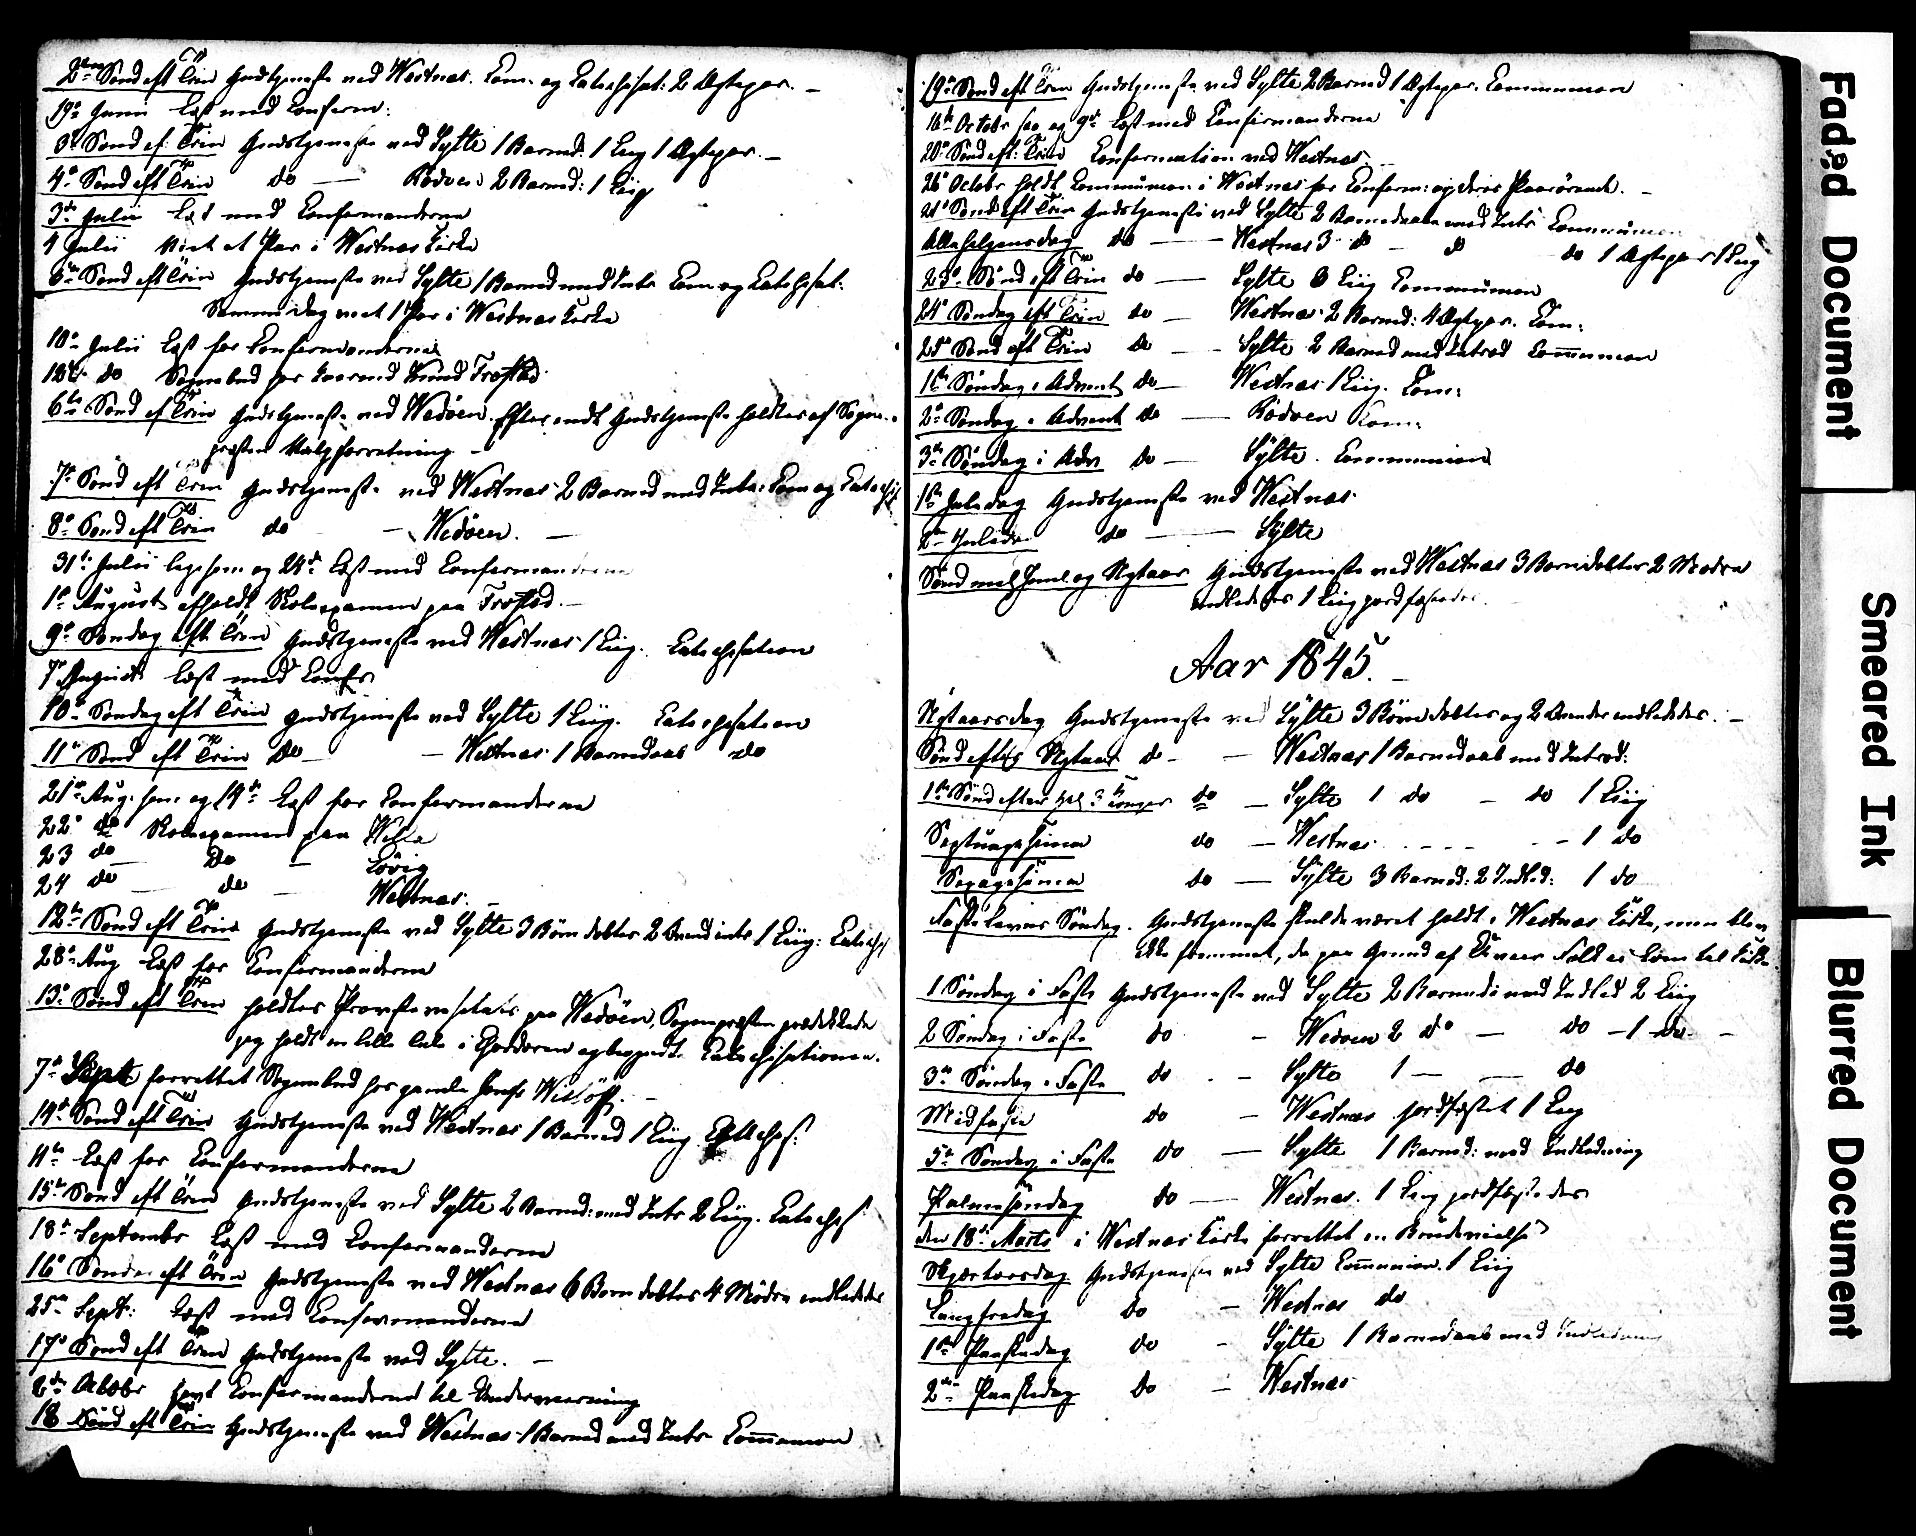 2den Sønd eft Trin Gudstjeneste ved Westnæs. Com. og Catechisat: 2 Ægtepar. —
19de Junii Læst med Conferm:
3de Sønd ef: Trin Gudstjeneste ved Sylte 1 Barned. 1 Liig 1 Ægtepar. —
4de Sønd eft Trin do — Rødven 2 Barned: 1 Liig
3die Julii Læst med Confermanderne
4 Julii Viet et Par i Westnæs Kirke
5te Sønd eft Trin Gudstjeneste ved Sylte 1 Barned med Intr. Com og Catechisat:
Samme Dag viet 1 Par i Westnæs Kirke
10de Julii Læst for Confermanderne
12te do Sognebud hos Knud Trohstad
6te Sønd ef Trin Gudstjeneste ved Wedøen. Efter endt Gudstjeneste holdtes af Sogne-
præsten Valgforretning —
7de Sønd eft Trin Gudstjeneste ved Westnæs 2 Barned med Intr: Com og Catechis
8de Sønd eft Trin do — Wedøen. —
31te Julii ligesom og 24de Læst med Confermanderne
1ste August afholdt Skoleexamen paa Trohstad. —
9de Søndag eft: Trin Gudstjeneste ved Westnæs 1 Liig. Catechisation
7de August Læst med Confr
10de Søndag eft Trin Gudstjeneste ved Sylte 1 Liig. Catechisation
11te Sønd eft Trin do — Westnæs 1 Barnedaab do
21de Aug. som og 14de Læst for Confermanderne
22de do Skoleexamen paa Villa
23 do — do — Løvig
24 do — do — Westnæs. —
12te Sønd eft Trin Gudstjeneste ved Sylte 3 Børn døbtes 2 intr 1 Liig: Catechs
28de Aug Læst for Confermanderne
13de Sønd eft Trin holdtes Provstevisitats paa Wedøen, Sognepræsten prædikede
jeg holdt en lille Tale i Chordøren og begyndte Catechisationen.
7de Sept: forrettet Sognebud hos gamle Wisløff. —
14de Sønd eft Trin Gudstjeneste ved Westnæs 1 Barned 1 Liig Catechs:
11te Læst for Confermanderne
15de Sønd eft Trin Gudstjeneste ved Sylte 2 Barned: med Intr 2 Liig. Catechs
18de Septembr Læst med Confermanderne
16de Søndag eft Trin Gudstjeneste ved Westnæs 6 Børn døbtes 4 Mødre indlededes
25de Sept: Læst med Confermanderne
17de Sønd eft Trin Gudstjeneste ved Sylte. —
2den Octobr Confermanderne til Underviisning
18 Sønd eft Trin Gudstjeneste ved Westnæs 1 Barned med Intr Communion
19de Sønd eft Trin Gudstjeneste ved Sylte 2 Barned 1 Ægtepar. Communion
16de Octobr som og 9de Læst med Confirmanderne
20de Sønd eft: Trin Confermation ved Westnæs —
26de Octobr holdt Communion i Westnæs for Conferm: og deres Paarørende. —
21de Sønd eft Trin Gudstjeneste ved Sylte 2 Barnedaab med Intr Communion
Allehelgensdag do — Westnæs 3 do — do do 1 Ægtepar 1 Liig
23de Sønd eft Trin do — Sylte 6 Liig Communion
24de Søndag eft Trin do — Westnæs 2 Barned: 4 Ægtepar. Com:
25de Sønd eft Trin do — Sylte 2 Barned med Introd Communion
1ste Søndag i Advent do — Westnæs 1 Liig. Com:
2den Søndag i Advent do — Rødven Com:
3die Søndag i Adv do — Sylte. Communion
1ste Juledag Gudstjeneste ved Westnæs
2den Juledag do — Sylte
Sønd mel Juul og Nytaar Gudstjeneste ved Westnæs 3 Børn døbtes 2 Mødre
indlededes 1 Liig jordfæstedes.
Aar 1845. —
Nytaarsdag Gudstjeneste ved Sylte 3 Børn døbtes og 2 indlededes. —
Sønd efter Nytaar do — Westnæs 1 Barnedaab med Introd:
1ste Sønd efter Hel 3 Konger do — Sylte 1 do — do 1 Liig
Septuagesima do — Westnæs - - - 1 do
Sexagesima do — Sylte 3 Barned: 2 Indled: 1 do
Fastelavns Søndag. Gudstjeneste skulde været holdt i Westnæs Kirke, men blev
ikke fremmet, da paa Grund af Uveir Folk ei kom til Kirke.
1 Søndag i Faste Gudstjeneste ved Sylte 2 Barnedb med Indled 2 Liig
2 Søndag i Faste do — Wedøen 2 do — do — 1 do —
3die Søndag i Faste do — Sylte 1 — do
Midfaste do — Westnæs jordfæstet 1 Liig
5te Søndag i Faste do — Sylte 1 Barned: med Indledning
Palmesøndag do — Westnæs. 1 Liig jordfæstedes
den 18de Marts i Westnæs Kirke forrettet en Brudevielse
Skjærtorsdag Gudstjeneste ved Sylte Communion. 1 Liig
Langfredag do — Westnæs do
1ste Paaskedag do — Sylte 1 Barnedaab med Indledning
2den Paaskedag do — Westnæs
Faded Document
Smeared Ink
Blurred Document